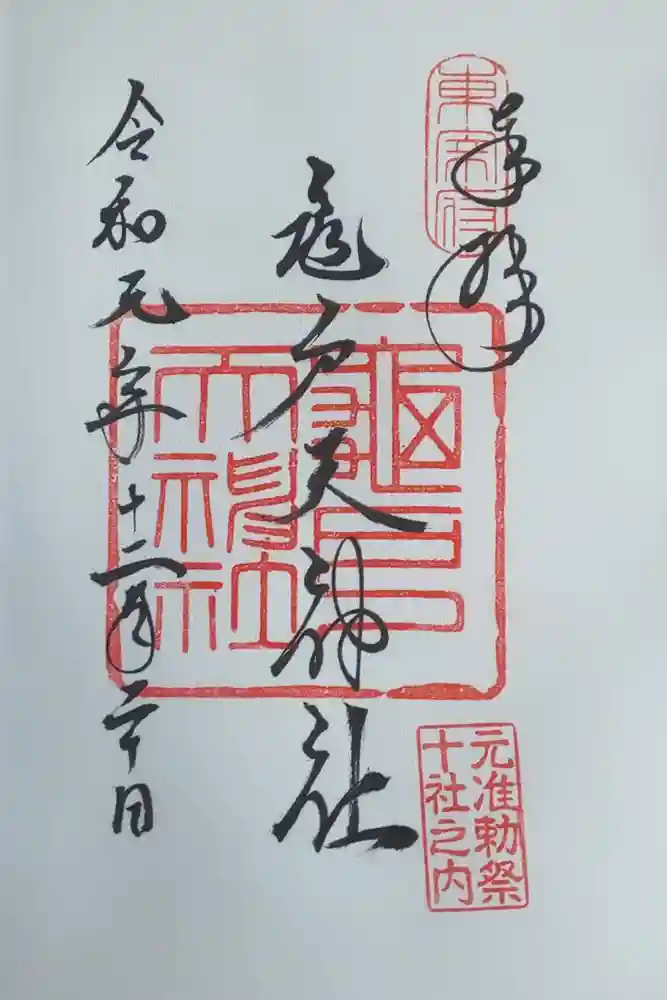 奉拝
東宰府
亀戸天神社
亀戸
天神社
令和元年十二月二十日
元准勅祭
十社之内